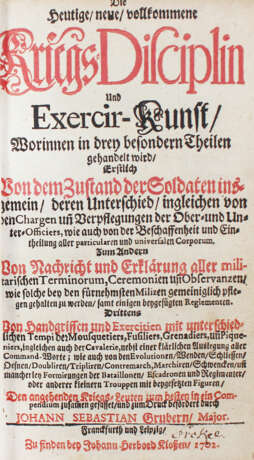 Die
Heutige/ neue/ vollkommene
Kriegs-Disciplin
Und
Exercir-Kunst/
Worinnen in drey besondern Theilen
gehandelt wird/
Erstlich
Von dem Zustand der Soldaten ins-
gemein/ deren Unterschied/ ingleichen von
den Chargen uñ Verpflegungen der Ober- und Un-
ter-Officiers, wie auch von der Beschaffenheit und Ein-
theilung aller particularen und universalen Corporum.
Zum Andern
Von Nachricht und Erklärung aller mili-
tarischen Terminorum, Ceremonien uñ Observanzen/
wie solche bey den fürnehmsten Milizen gemeiniglich pfle-
gen gehalten zu werden/ samt einigen beygefügten Reglementen.
Drittens
Von Handgriffen und Exercitien mit unterschied-
lichen Tempi der Mousquetiers, Fusiliers, Grenadiers, uñ Pique-
niers, ingleichen auch der Cavalerie, nebst einer klärlichen Auslegung aller
Command-Worte; wie auch von den Evolutionen/ Wenden/ Schliessen/
Oeffnen/ Doubliren/ Tripliren/ Contremarch, Marchiren/ Schwencken/ uñ
mancherley Formirungen der Bataillonen/ Escadronen und Regimenter/
oder anderer kleinern Trouppen mit beygesetzten Figuren/
Den angehenden Kriegs-Leuten zum besten in ein Com-
pendium zusammen gefasset/ und zum Druck befördert durch
JOHANN SEBASTIAN Grubern/ Major.
Franckfurth und Leipzig/
Zu finden bey Johann Herbord Kloßen/ 1702.